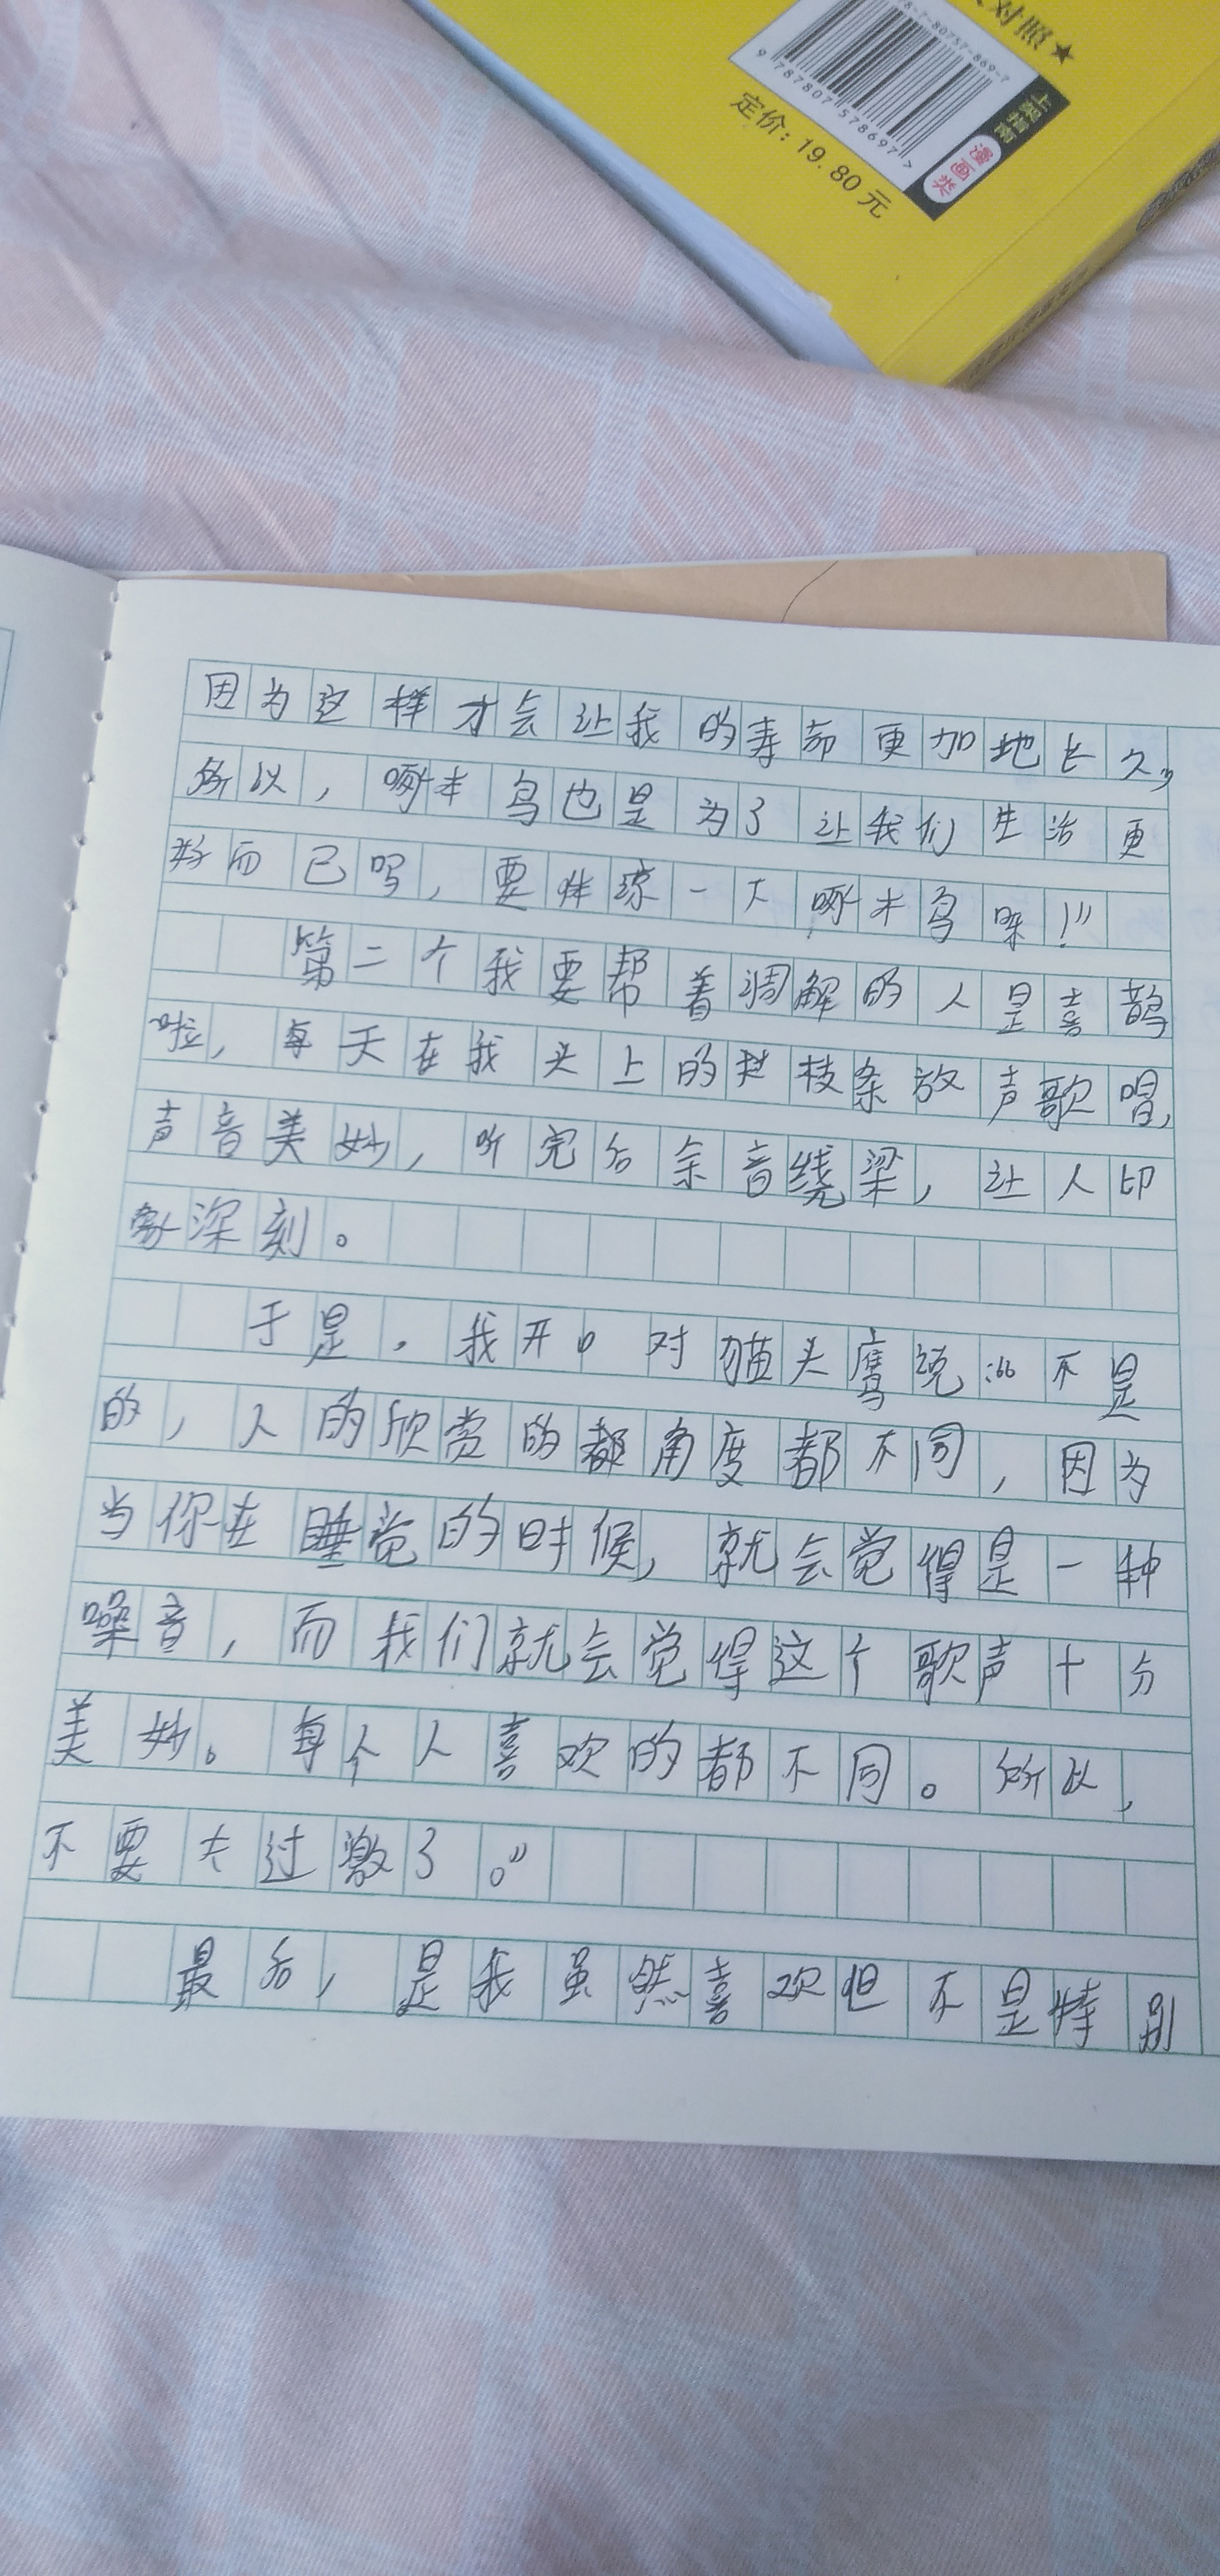 对照★
78-7-80757-869-7
9 787807 578697 >
上架指南
漫画类
定价: 19.80 元
因为这样才会让我的寿命更加地长久,
所以，啄木鸟也是为了让我们生活更
好而已吗，要体谅一下啄木鸟呀！”
第二个我要帮着调解的人是喜鹊
啦，每天在我头上的枝条放声歌唱，
声音美妙，听完后余音绕梁，让人印
象深刻。
于是，我开口对猫头鹰说：“不是
的，人的欣赏的都角度都不同，因为
当你在睡觉的时候，就会觉得是一种
噪音，而我们就会觉得这个歌声十分
美妙。每个人喜欢的都不同。所以，
不要太过激了。”
最后，是我虽然喜欢但不是特别